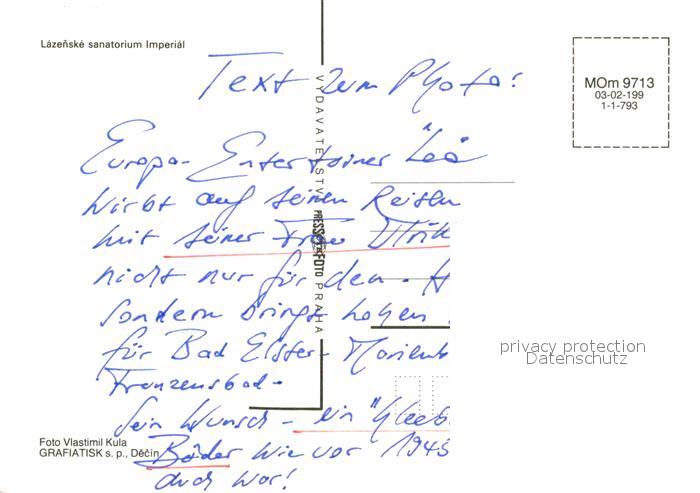 Lázeňské sanatorium Imperiál
MOm 9713
03-02-199
1-1-793
Text zum Photo:
Europa-Entertainer "Leo"
wirbt auf seinen Reisen
mit seiner Frau Ulrik
nicht nur für den - H
sondern bringt hohen
für Bad Elster - Marienb
Franzensbad -
Sein Wunsch - ein "
Bäder wie vor 1945
auch war!
VYDAVATELSTVÍ PRESSFOTO PRAHA
privacy protection
Datenschutz
Foto Vlastimil Kula
GRAFIATISK s. p., Děčín